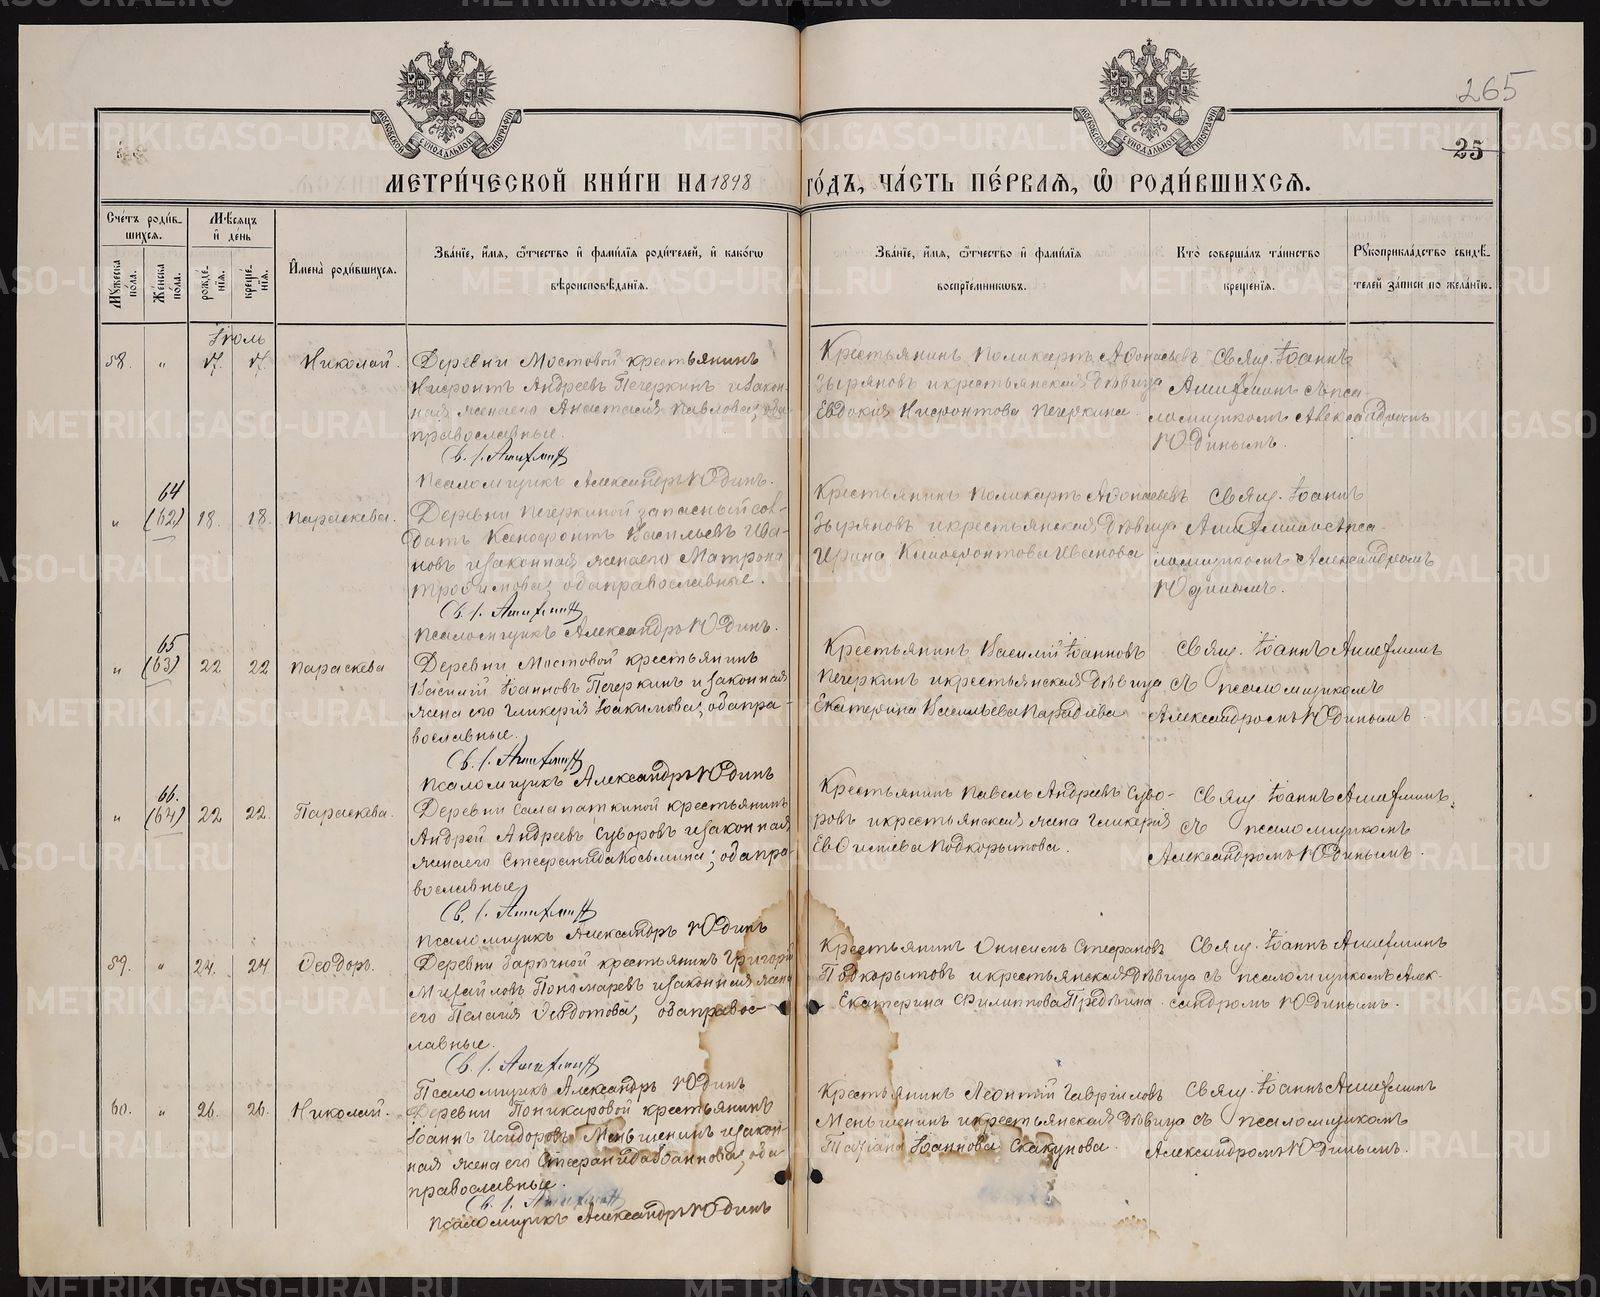 265
25
МОСКОВСКОЙ СѴНОДАЛЬНОЙ ТИПОГРАФІИ
МОСКОВСКОЙ СѴНОДАЛЬНОЙ ТИПОГРАФІИ
МЕТРИ́ЧЕСКОЙ КНИ́ГИ НА 1898 ГО́ДЪ, ЧА́СТЬ ПЕ́РВАЯ, Ѡ҆ РОДИ́ВШИХСЯ.
Сче́тъ роди́в-
шихся.
Мѣ́сяцъ
и҆ де́нь
Мꙋ́жеска
по́ла.
Же́нска
по́ла.
рожде́-
нїя.
креще́-
нїя.
И҆мена̀ роди́вшихся.
Зва́нїе, и҆́мя, ѻ҆́тчество и҆ фами́лїѧ роди́телей, и҆ како́гѡ
вѣроисповѣ́данїя.
Зва́нїе, и҆́мя, ѻ҆́тчество и҆ фами́лїя
воспрїе́мникѡвъ.
Кто̀ соверша́лъ та́инство
креще́нїя.
Рꙋкоприкла́дство свидѣ́-
телей за́писи по жела́нїю.
Іюль
58. " 17. 17. Николай.
Деревни Мостовой крестьянинъ
Нифонтъ Андреевъ Печеркинъ и закон-
ная жена его Анастасія Павлова; оба
православные.
Св. І. Ашихминъ
Псаломщикъ Александръ Юдинъ.
Крестьянинъ Поликарпъ Афонасьевъ
Зыряновъ и крестьянская дѣвица
Евдокія Нифонтова Печеркина.
Свящ. Іоаннъ
Ашихминъ съ пса-
ломщикомъ Александромъ
Юдинымъ.
64
" (62) 18. 18. Параскева.
Деревни Печеркиной запасный сол-
датъ Ксенофонтъ Васильевъ Ива-
новъ и законная жена его Матрона
Трофимова; оба православные.
Св. І. Ашихминъ
Псаломщикъ Александръ Юдинъ.
Крестьянинъ Поликарпъ Афонасьевъ
Зыряновъ и крестьянская дѣвица
Ирина Ксенофонтова Иванова
Свящ. Іоаннъ
Ашихминъ съ пса-
ломщикомъ Александромъ
Юдинымъ.
65
" (63) 22 22 Параскева
Деревни Мостовой крестьянинъ
Василій Іоанновъ Печеркинъ и законная
жена его Гликерія Іоакимова; оба пра-
вославные.
Св. І. Ашихминъ
Псаломщикъ Александръ Юдинъ
Крестьянинъ Василій Іоанновъ
Печеркинъ и крестьянская дѣвица
Екатерина Васильева
Свящ. Іоаннъ Ашихминъ
съ псаломщикомъ
Александромъ Юдинымъ.
66.
" (64) 22 22. Параскева.
Деревни Салапаткиной крестьянинъ
Андрей Андреевъ Суворовъ и законная
жена его Стефанида Косьмина; оба пра-
вославные
Св. І. Ашихминъ
Псаломщикъ Александръ Юдинъ
Крестьянинъ Павелъ Андреевъ Суво-
ровъ и крестьянская жена Гликерія
Подкорытова.
Свящ. Іоаннъ Ашихминъ
съ псаломщикомъ
Александромъ Юдинымъ.
59. " 24. 24 Ѳеодоръ.
Деревни Заречной крестьянинъ Григорій
Михайловъ Пономаревъ и законная жена
его Пелагія Ѳедотова; оба право-
славные.
Св. І. Ашихминъ
Псаломщикъ Александръ Юдинъ
Крестьянинъ Онисимъ Стефановъ
Подкорытовъ и крестьянская дѣвица
Екатерина Филиппова
Свящ. Іоаннъ Ашихминъ
съ псаломщикомъ Алек-
сандромъ Юдинымъ.
60. " 26. 26. Николай.
Деревни Поникаровой крестьянинъ
Іоаннъ Исидоровъ Меньшенинъ и закон-
ная жена его Стефанида Іоаннова; оба
православные.
Св. І. Ашихминъ
Псаломщикъ Александръ Юдинъ
Крестьянинъ Леонтій Гавріиловъ
Меньшенинъ и крестьянская дѣвица
Татіана Іоаннова Скакунова.
Свящ. Іоаннъ Ашихминъ
съ псаломщикомъ
Александромъ Юдинымъ.
METRIKI.GASO-URAL.RU